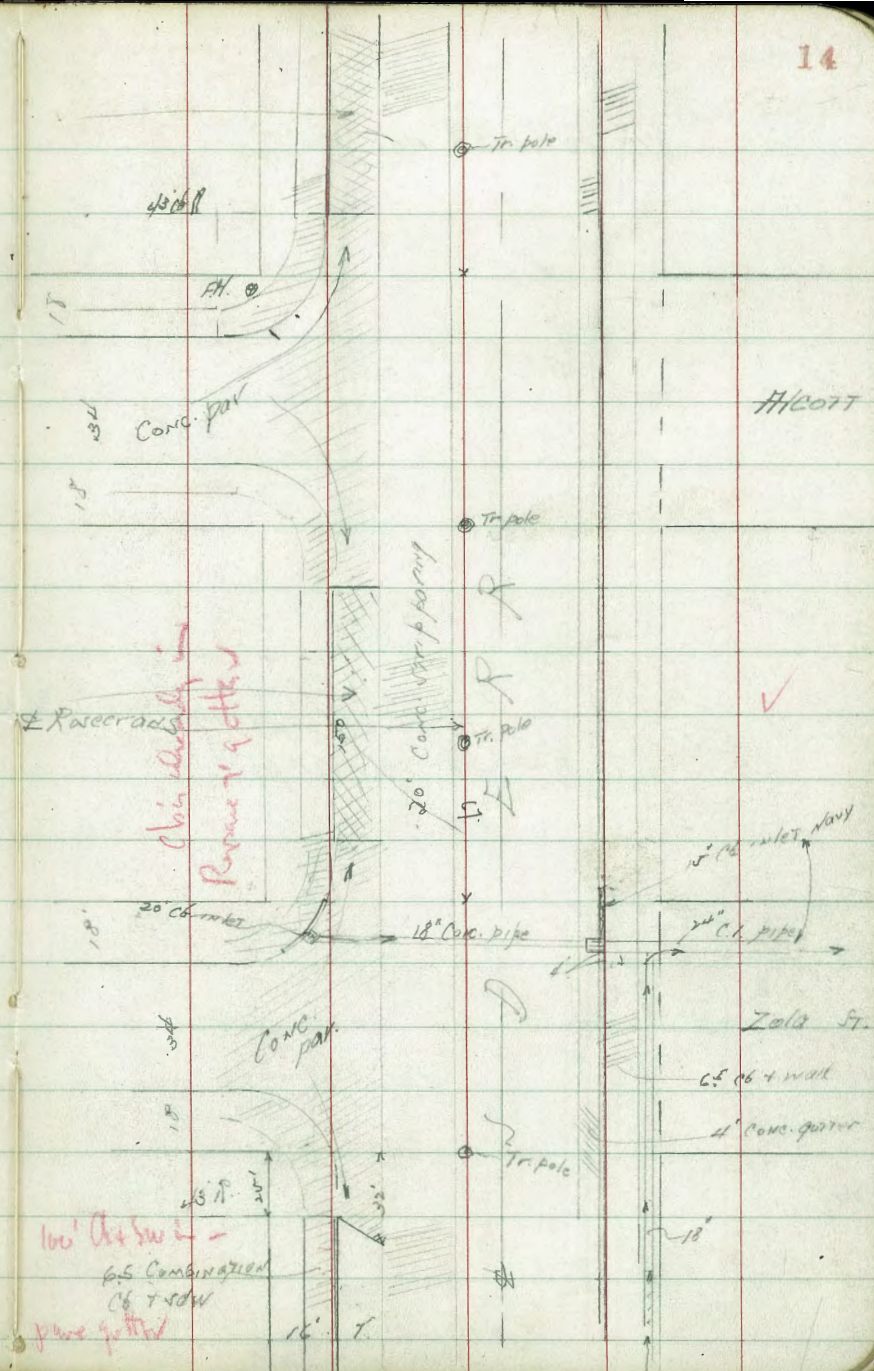 14
Tr. pole
43' Cb R
F.H.
18'
34
Conc. pav
Alcott
18'
Tr. pole
20' Conc. strip paving
B A R R E D
℄ Rosecrans
50'
Tr. pole
Repave 4' gutter
15' Cb inlet Navy
20' Cb inlet
18" Conc. pipe
24" C.I. pipe
18'
34
Conc. pav.
Zola St.
6.5 Cb + walk
18
4' Conc. gutter
Tr. pole
43' R.
32'
100' Cb + Sw in -
18"
6.5 Combination
Cb + sdw
pave gutter
16'
℄